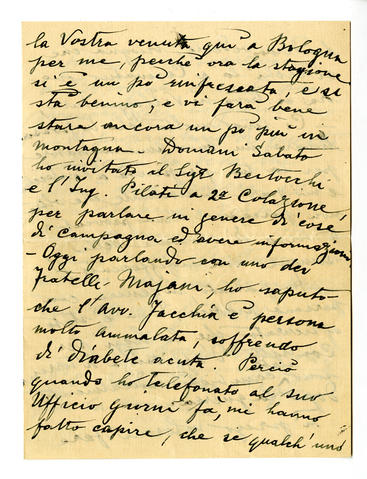 la Vostra venuta qui a Bologna
per me, perchè ora la stagione
si è un pò rinfrescata, e si
stà benino, e vi farà bene
stare ancora un pò più in
montagna. Domani Sabato
ho invitato il Sigr Bertocchi
e l'Ing. Pilati a 2a Colazione,
per parlare in genere di cose
di campagna ed avere informazioni
- Oggi parlando con uno dei
fratelli Majani, ho saputo
che l'Avv. Jacchia è persona
molto ammalata, soffrendo
di diabete acuta. Perciò
quando ho telefonato al suo
Ufficio giorni fà, mi hanno
fatto capire, che se qualch'uno